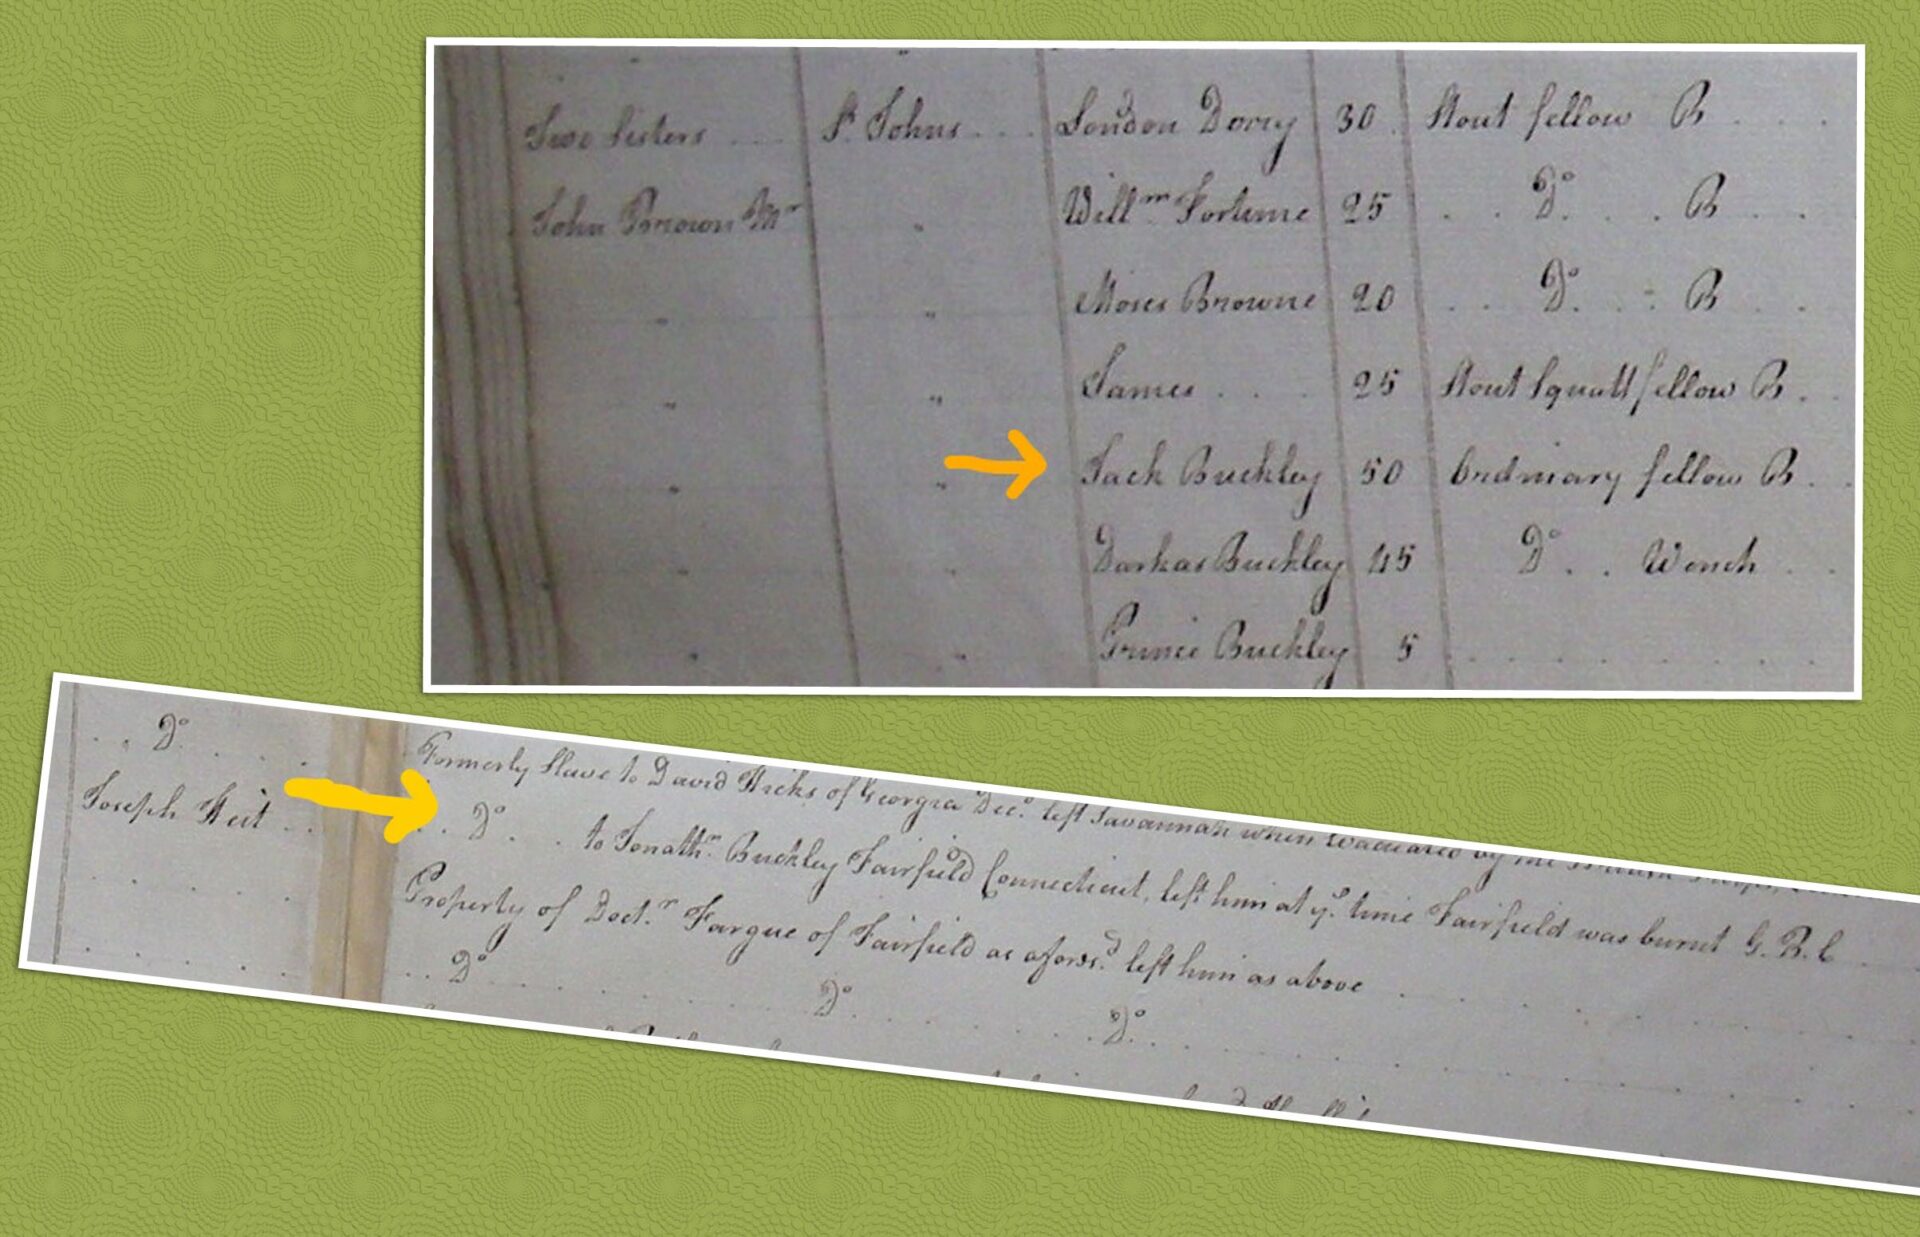 Two Sisters St Johns London Dorry 30 Stout fellow B
John Brown Mr " Willm Fortune 25 Do B
" " Moses Browne 20 Do B
" " James 25 Stout Squatt fellow B
" " Jack Buckley 50 Ordinary fellow B
" " Darkas Buckley 45 Do Wench
" " Prince Buckley 5
Do Formerly Slave to David Hicks of Georgia Decd left Savannah when evacuated by the British Troops
Joseph Do to Jonathn Buckley Fairfield Connecticut, left him at ye time Fairfield was burnt G. B. C
Property of Doctr Fargue of Fairfield as aforesd left him as above
Do Do Do